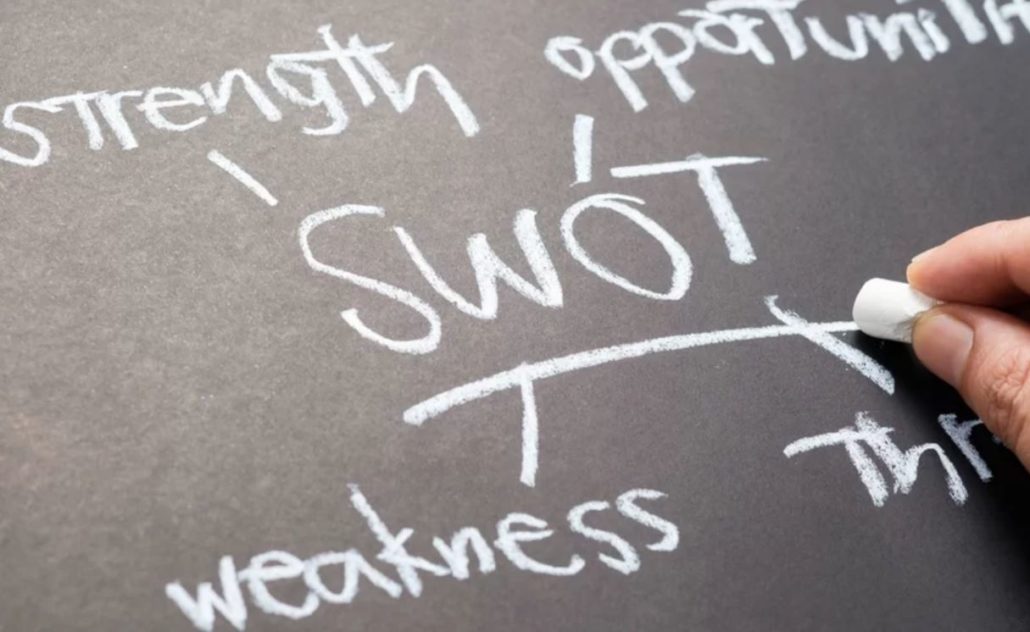 strength
opportunit
SWOT
Thr
weakness